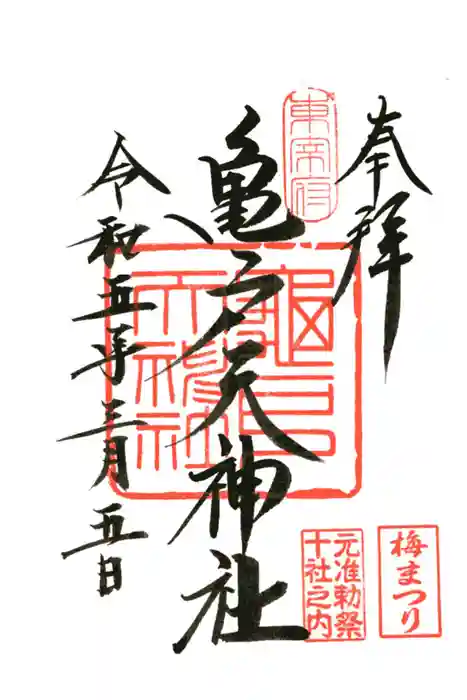 奉拝
東宰府
亀戸天神社
亀戸天神社
令和五年三月五日
梅まつり
元准勅祭
十社之内